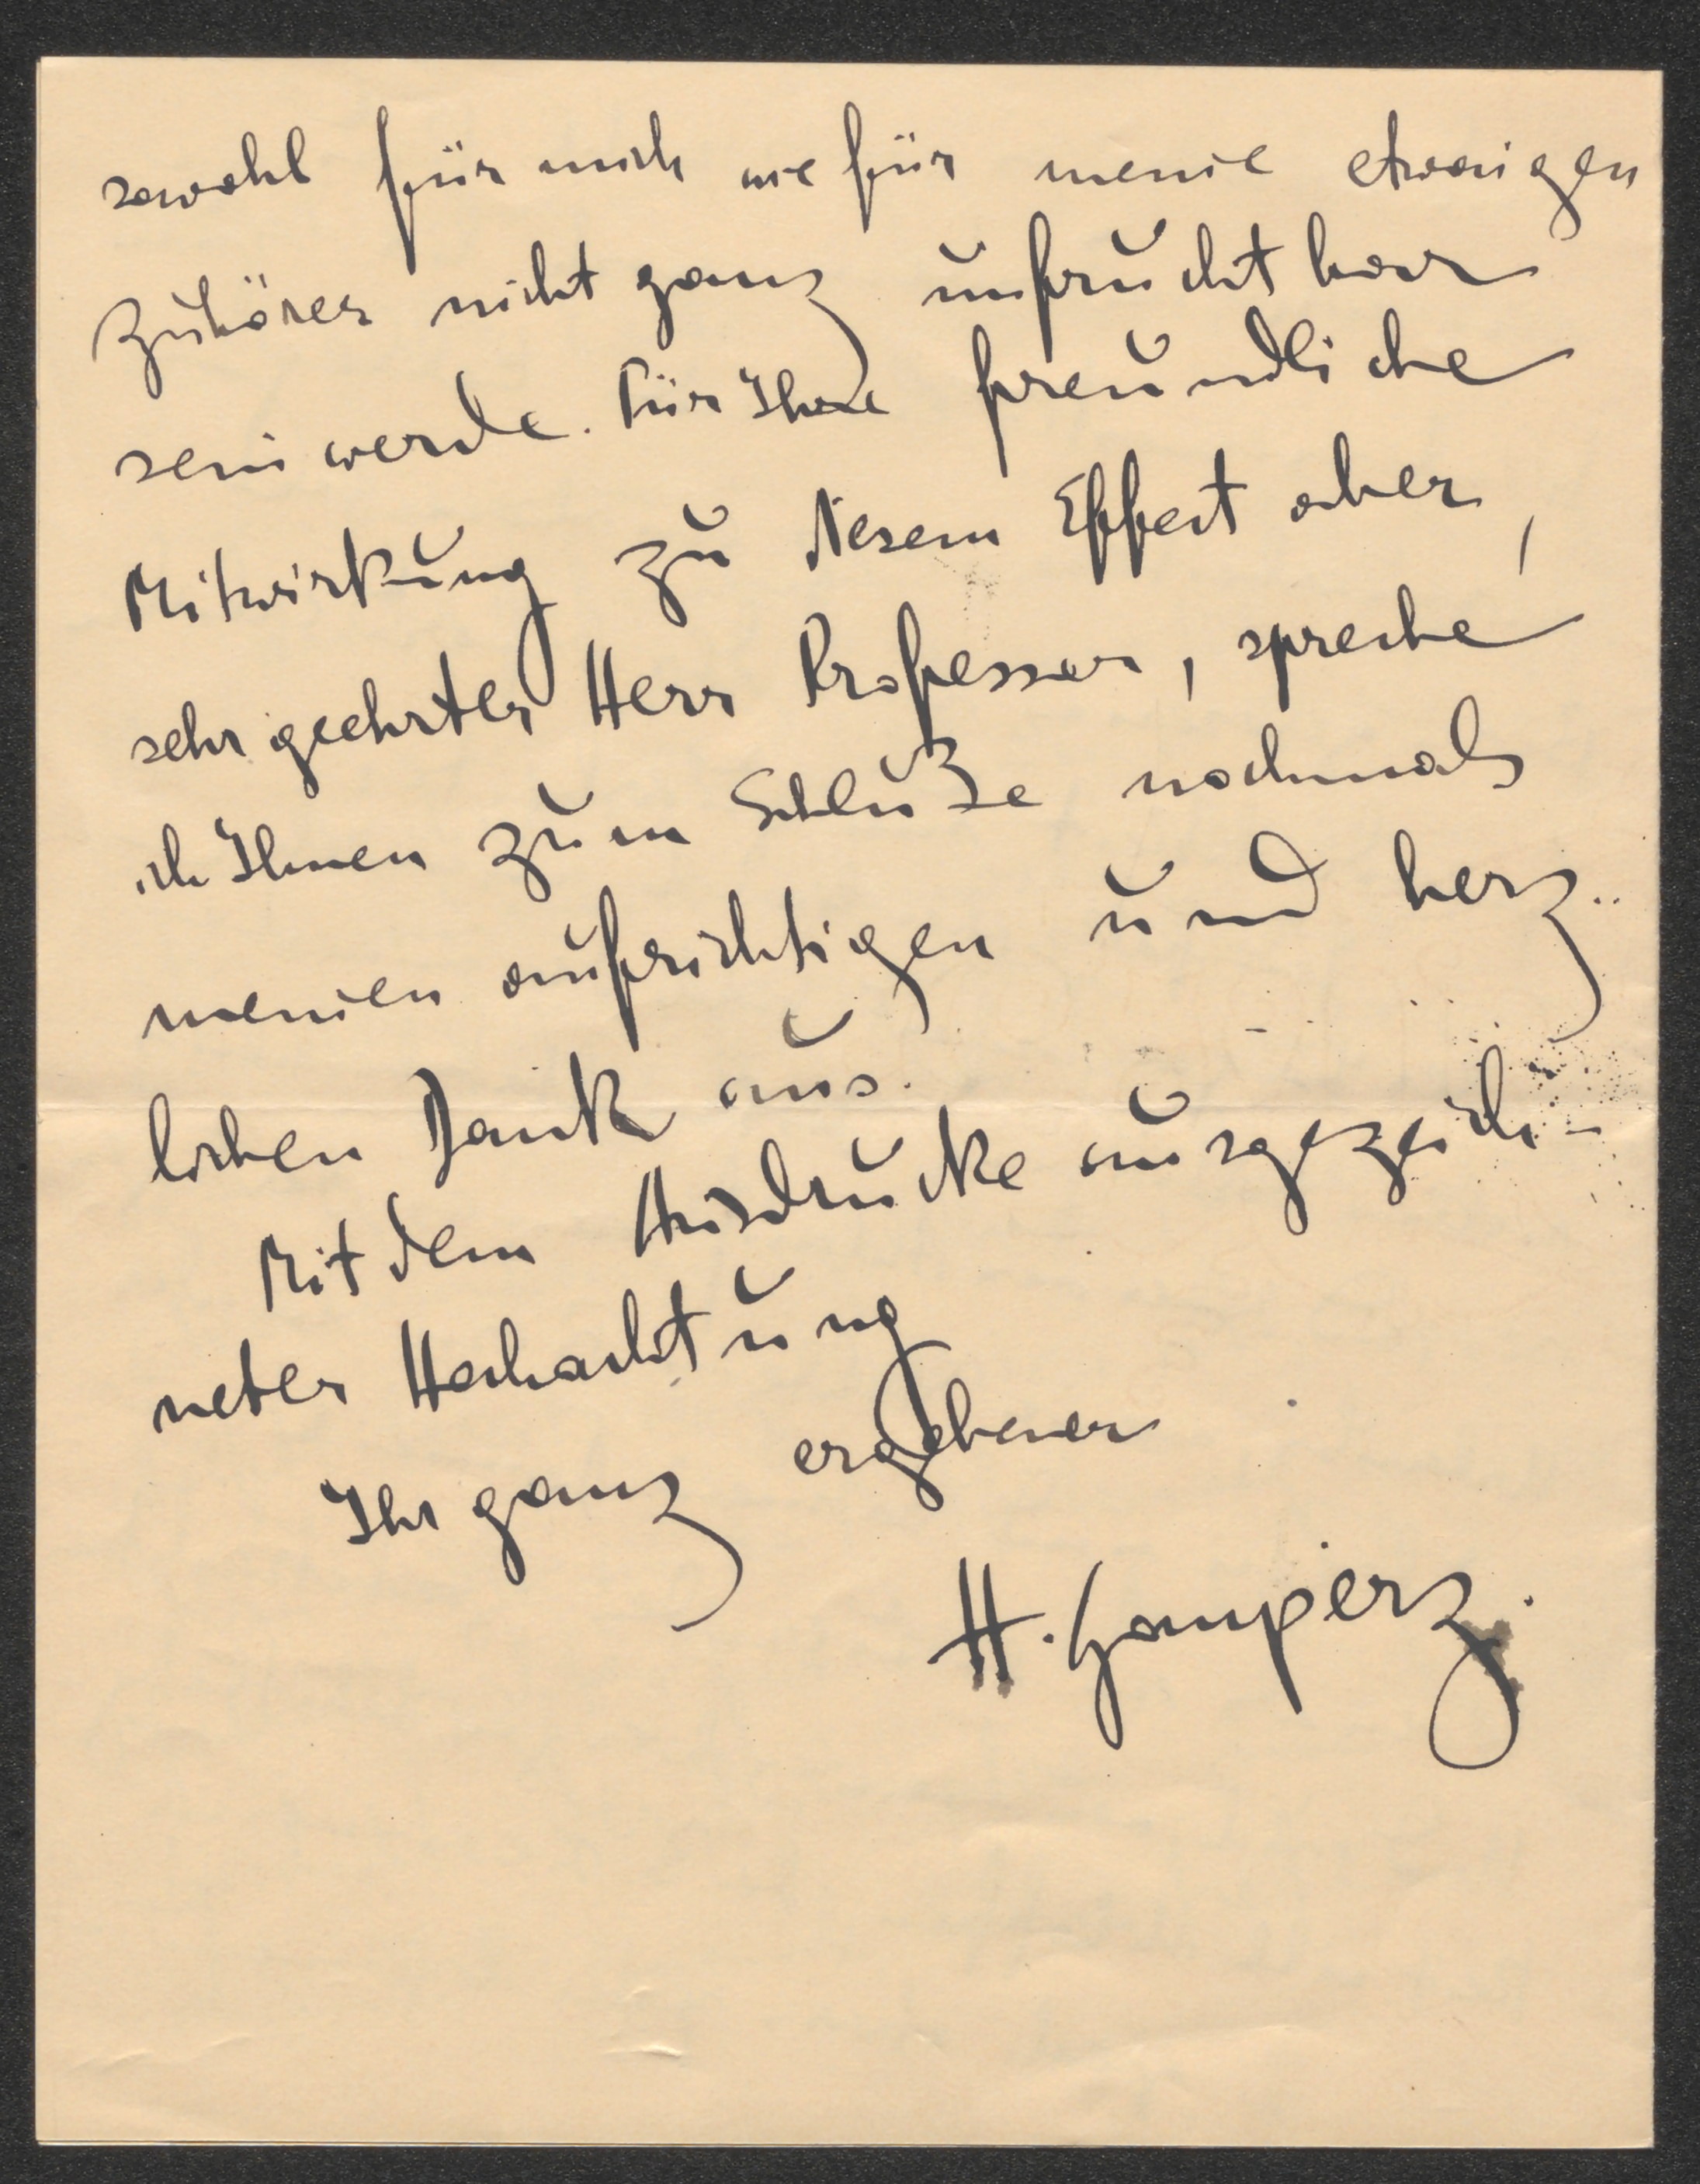 sowohl für mich wie für meine etwaigen
Zuhörer nicht ganz unfruchtbar
sein werde. Für Ihre freundliche
Mitwirkung zu diesem Effect aber,
sehr geehrter Herr Professor, spreche
ich Ihnen zum Schluße nochmals
meinen aufrichtigen und herz-
lichen Dank aus.
Mit dem Ausdrucke ausgezeich-
neter Hochachtung
Ihr ganz ergebener
H. Gomperz.